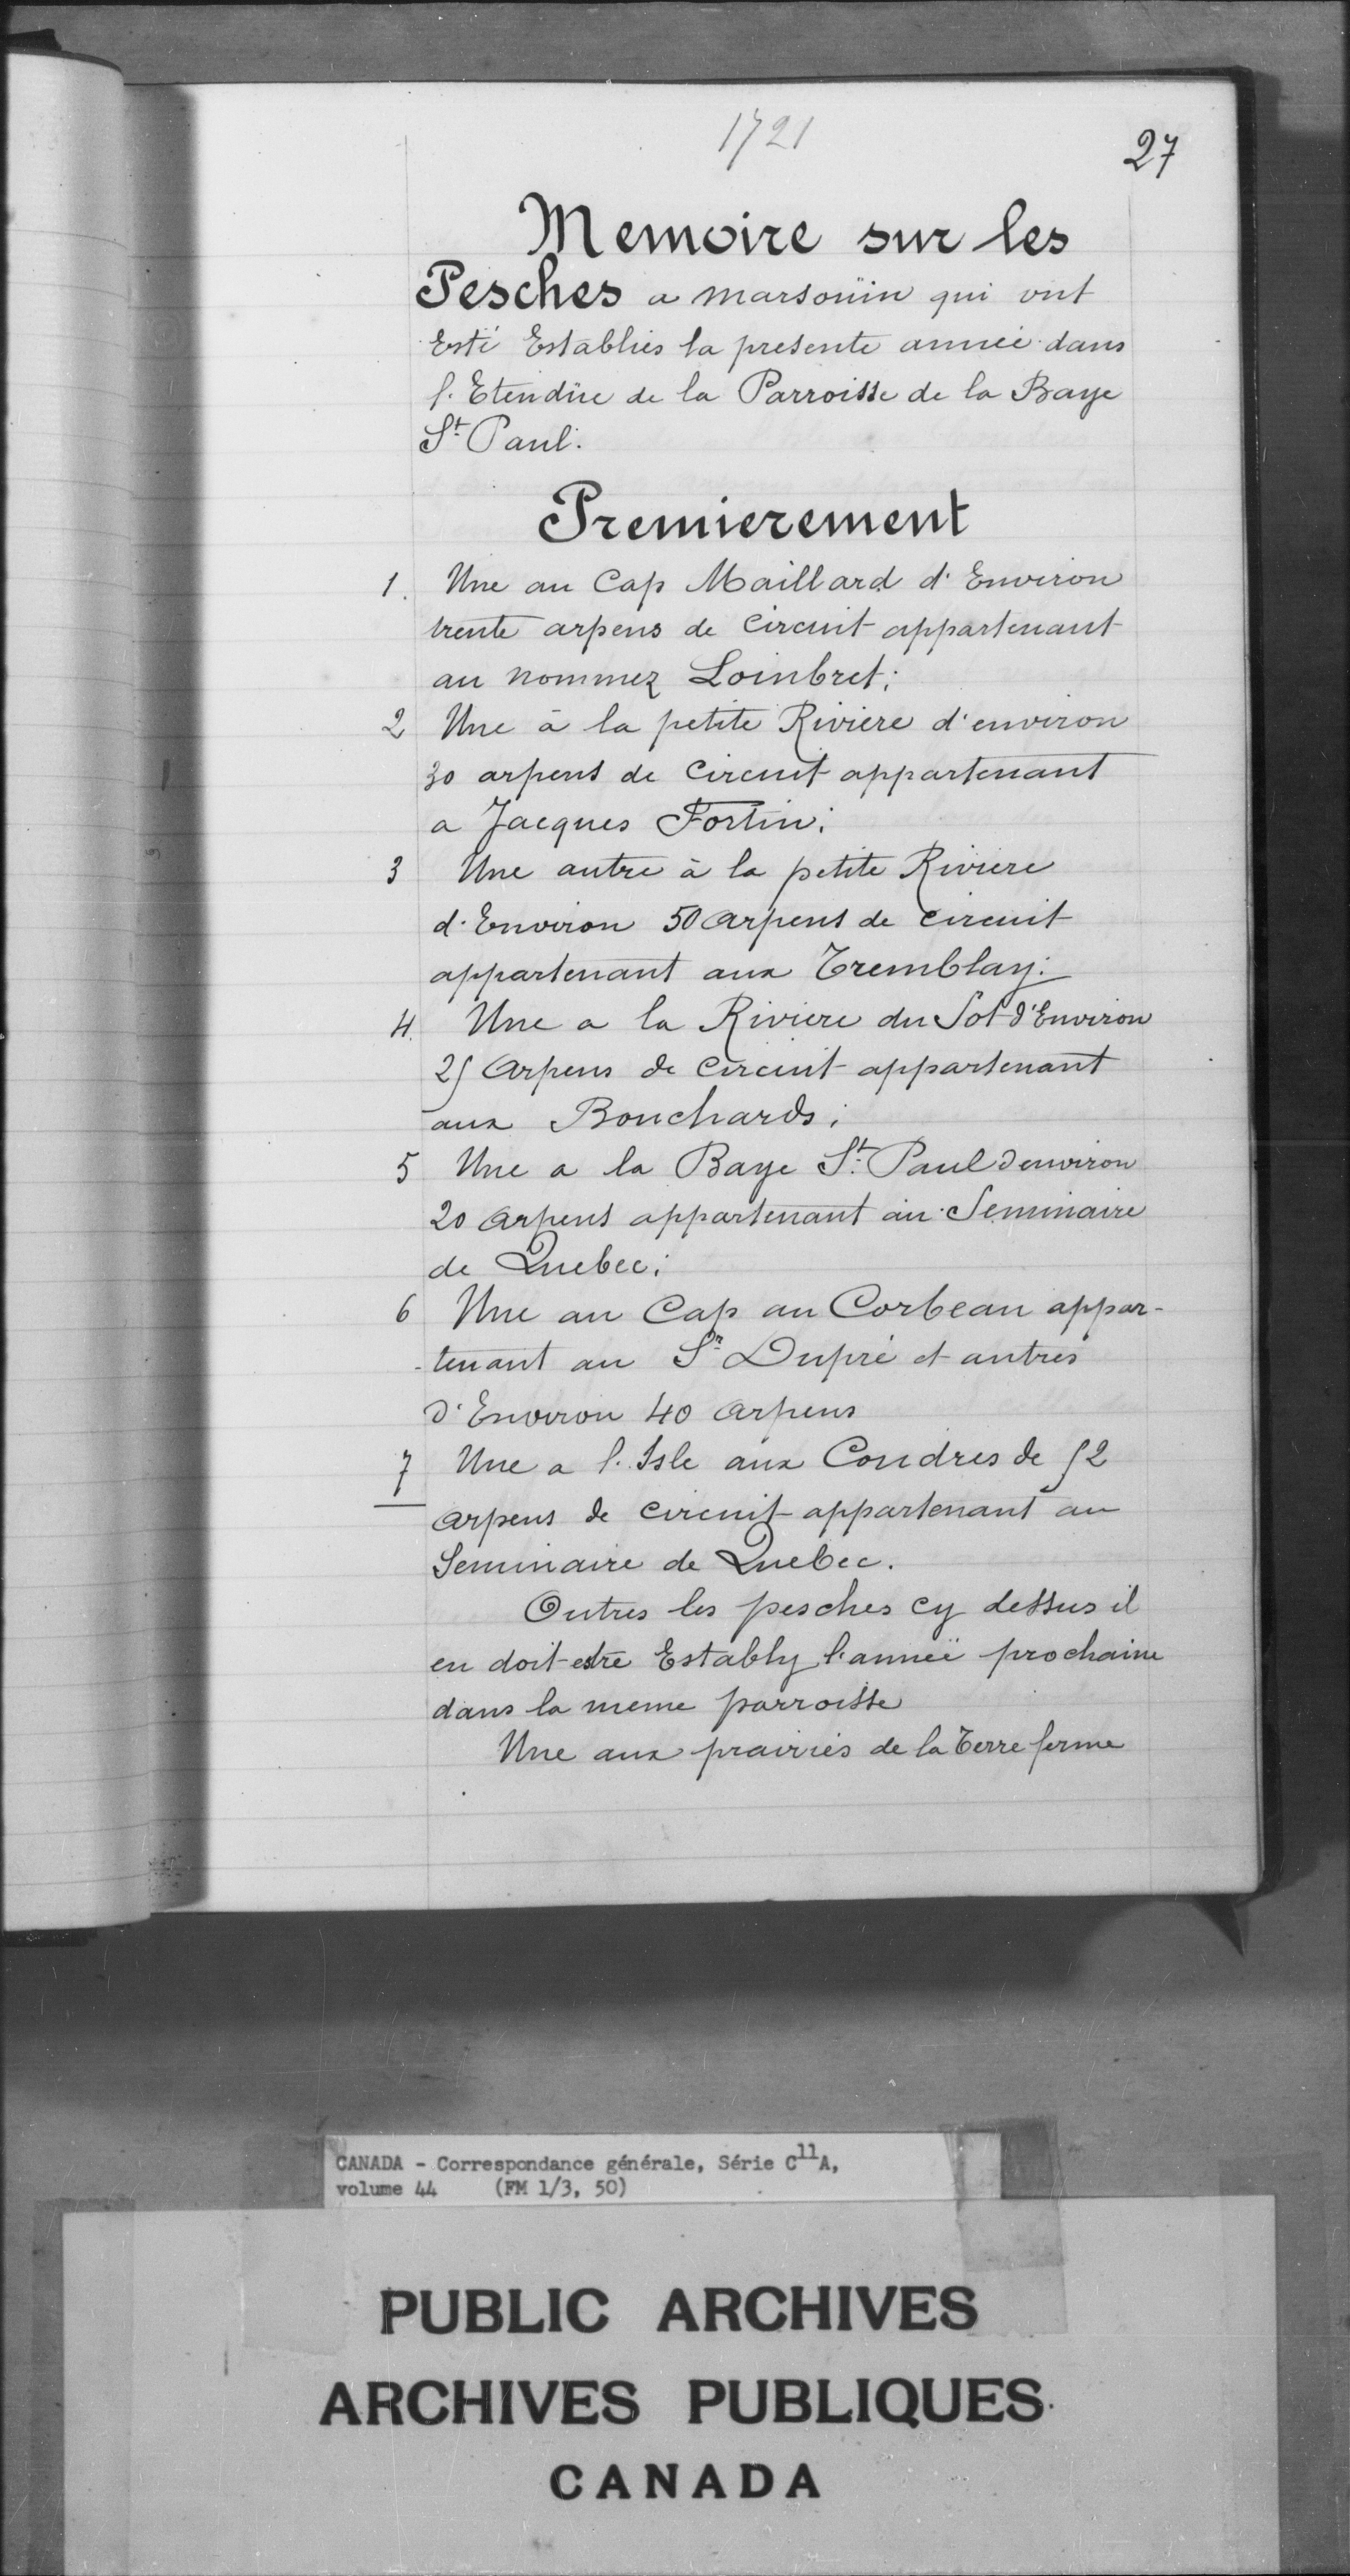 1721
27
Memoire sur les
Pesches a marsoüin qui ont
Esté Establies la presente année dans
l'Etendüe de la Parroisse de la Baye
St Paul.
Premierement
1. Une au Cap Maillard d'Environ
trente arpens de Circuit appartenant
au nommez Loinbret;
2 Une à la petite Riviere d'environ
30 arpens de Circuit appartenant
a Jacques Fortin;
3 Une autre à la petite Riviere
d'Environ 50 arpens de circuit
appartenant aux Tremblay;
4. Une a la Riviere du Sot d'Environ
25 arpens de Circuit appartenant
aux Bouchards;
5 Une a la Baye St Paul d'environ
20 arpens appartenant au Seminaire
de Quebec;
6 Une au Cap au Corbeau appar-
-tenant au Sr Dupré et autres
d'Environ 40 arpens
7 Une a l'Isle aux Coudres de 52
arpens de circuit appartenant au
Seminaire de Quebec.
Outres les pesches cy dessus il
en doit estre Estably l'année prochaine
dans la meme parroisse
Une aux prairies de la Terre ferme
CANADA - Correspondance générale, Série C11A,
volume 44 (FM 1/3, 50)
PUBLIC ARCHIVES
ARCHIVES PUBLIQUES
CANADA